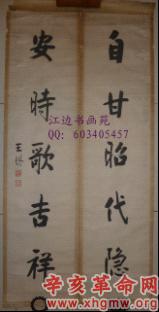 自甘昭代隐
安時歌吉祥
王
江边书画苑
QQ: 603405457
辛亥革命网
www.xhgmw.org